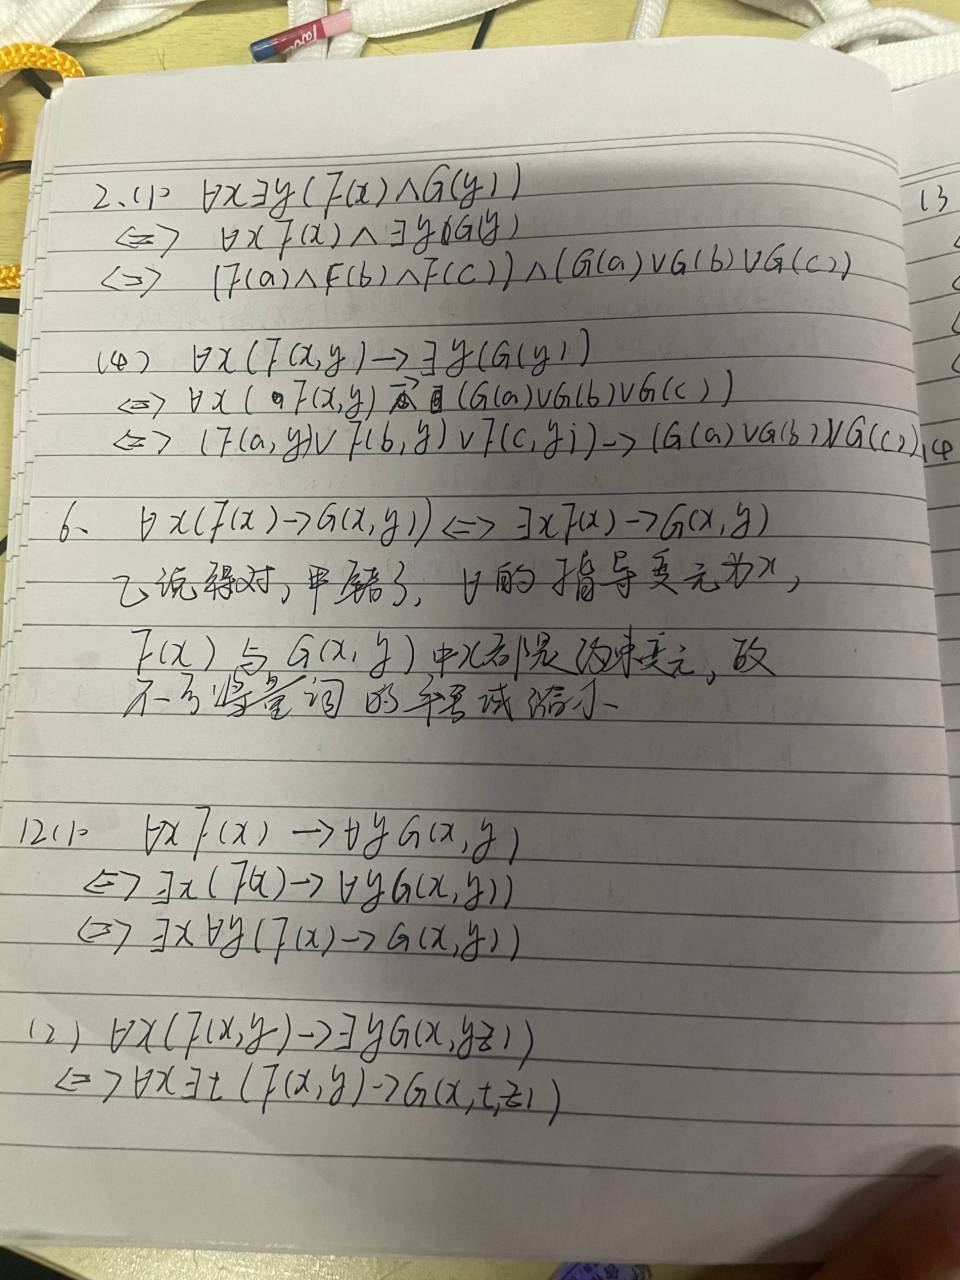 2.(1) ∀x∃y(F(x)∧G(y))
⇔ ∀xF(x)∧∃y(G(y)
⇔ (F(a)∧F(b)∧F(c))∧(G(a)∨G(b)∨G(c))
(4) ∀x(F(x,y)→∃y(G(y))
⇔ ∀x(F(x,y)→(G(a)∨G(b)∨G(c))
⇔ (F(a,y)∨F(b,y)∨F(c,y))→(G(a)∨G(b)∨G(c))
6、 ∀x(F(x)→G(x,y))⇔∃xF(x)→G(x,y)
乙说得对,甲错了,∀的指导变元为x,
F(x)与G(x,y)中x都是约束变元,故
不可将量词的辖域缩小、
12(1) ∀xF(x)→∀yG(x,y)
⇔∃x(F(x)→∀yG(x,y))
⇔∃x∀y(F(x)→G(x,y))
(2) ∀x(F(x,y)→∃yG(x,yz))
⇔∀x∃t(F(x,y)→G(x,t,z))
(3
(4